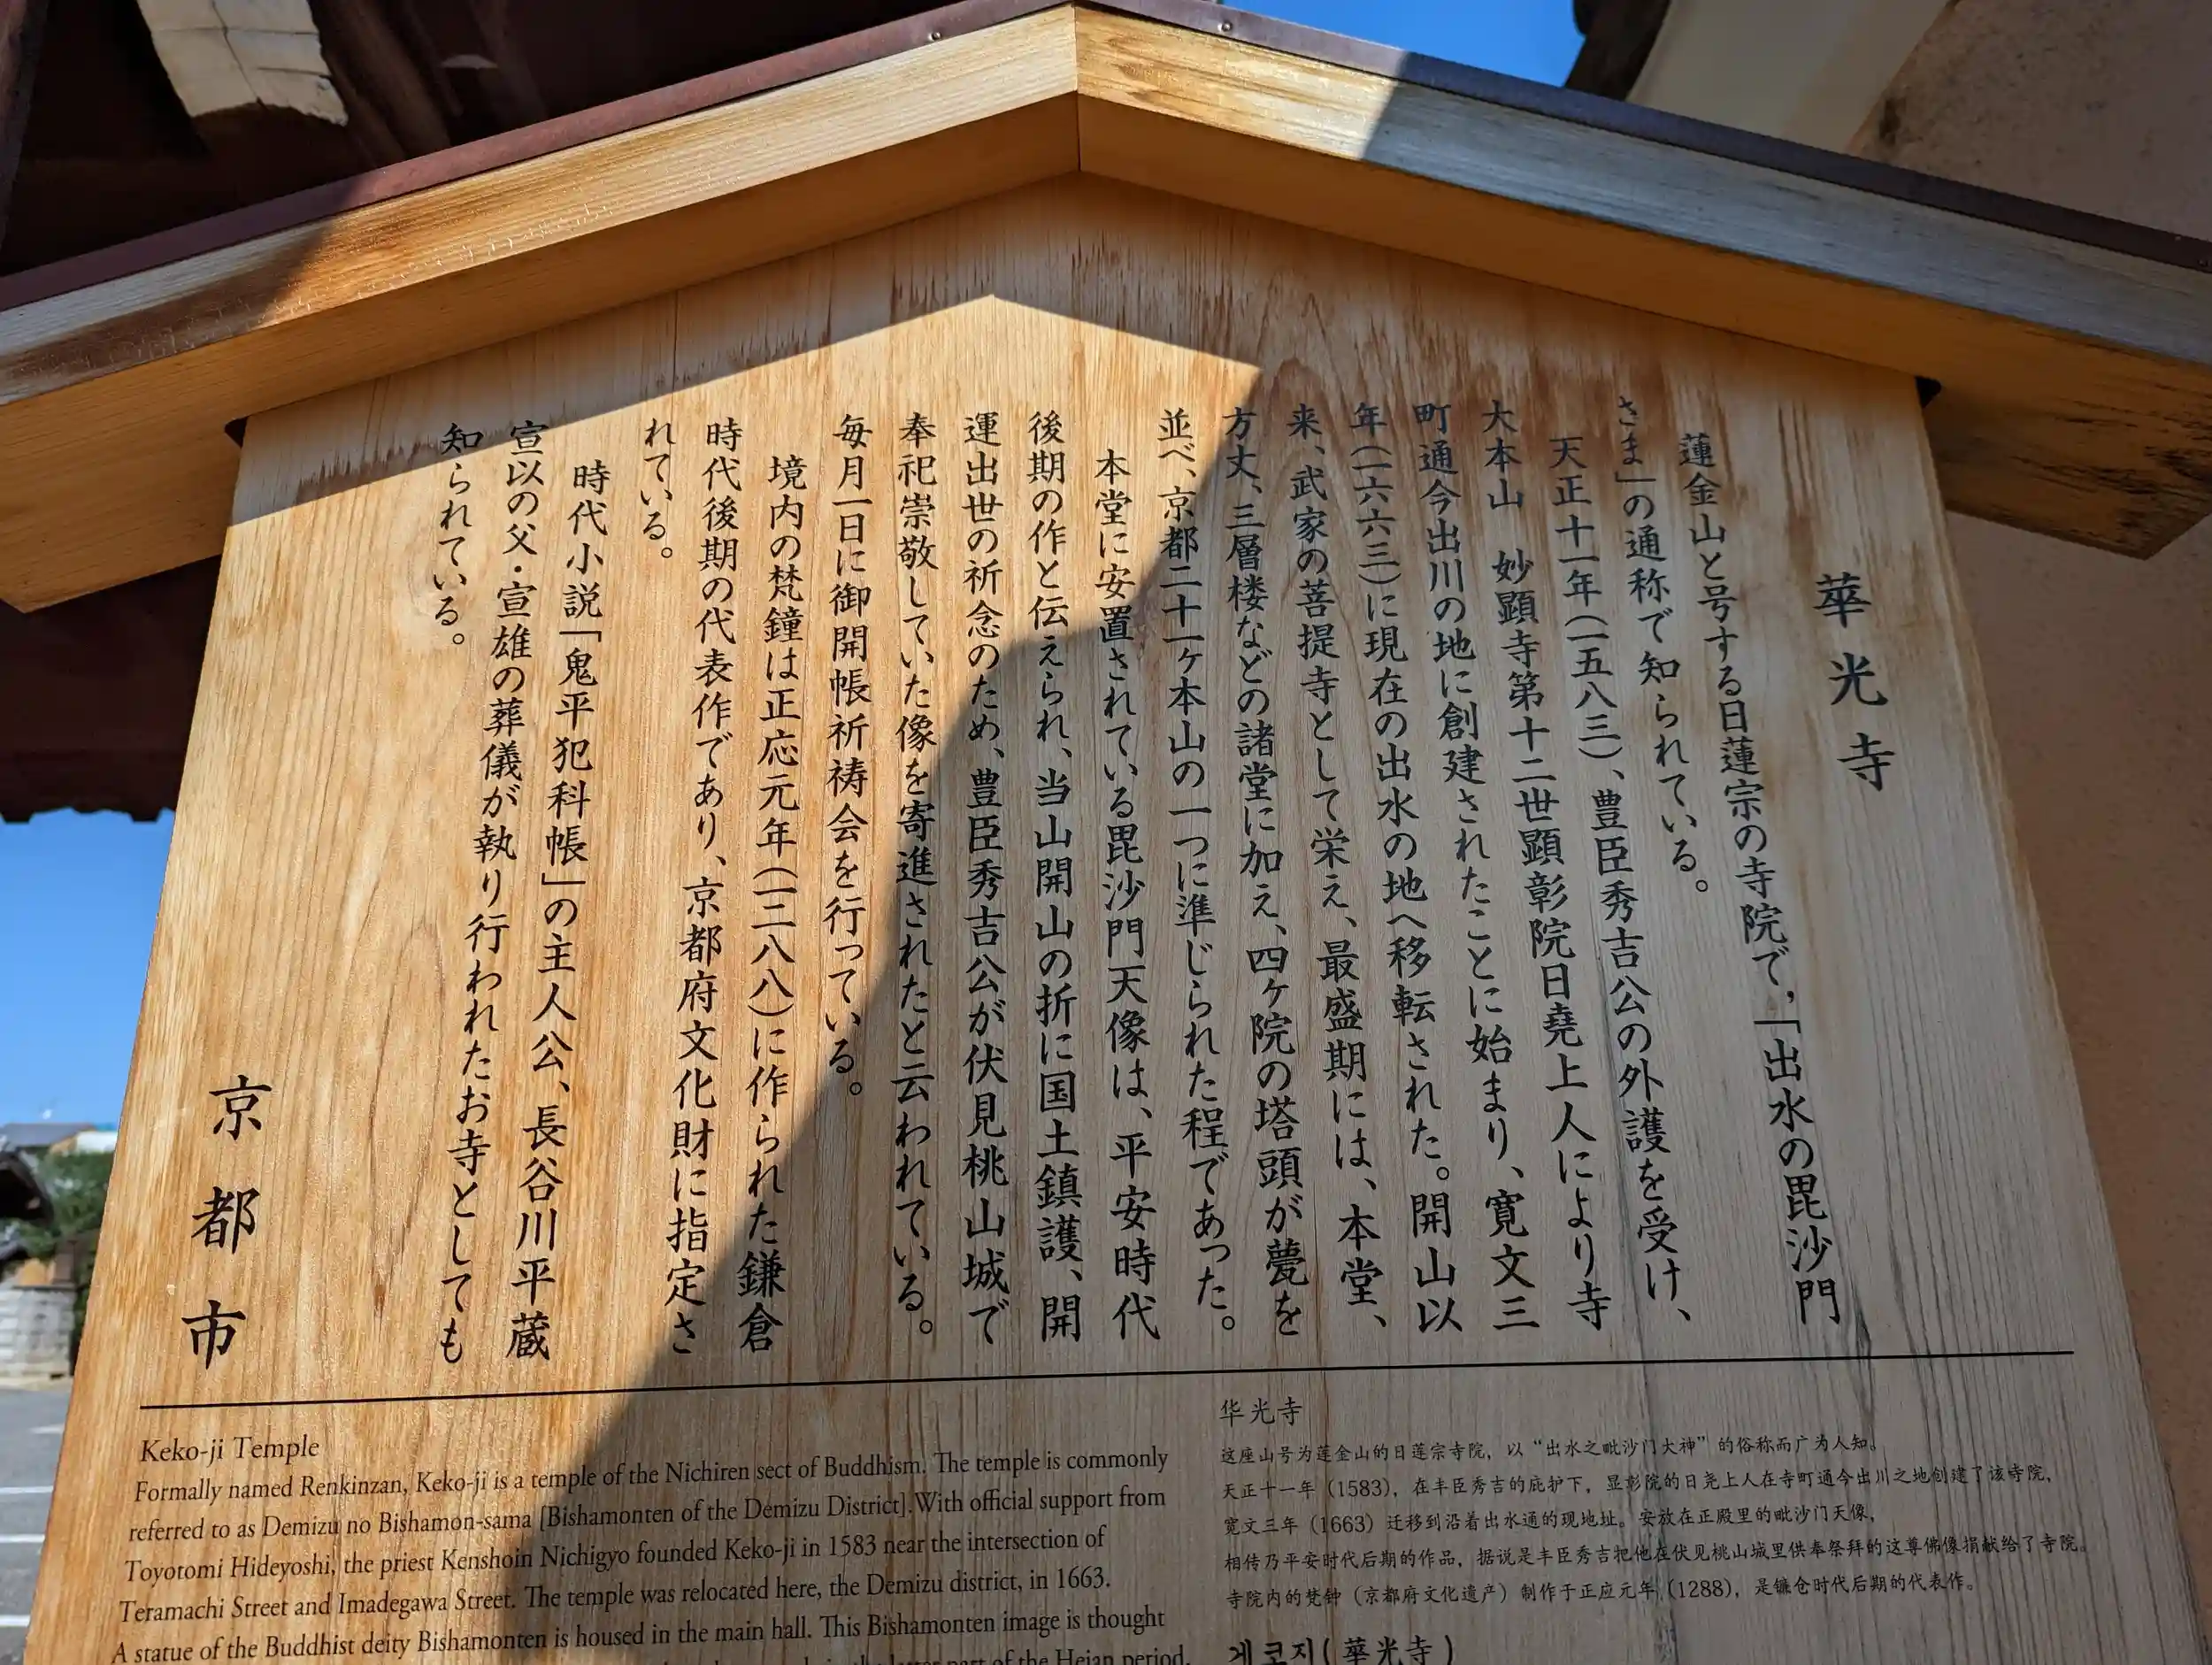 華光寺
蓮金山と号する日蓮宗の寺院で，「出水の毘沙門
さま」の通称で知られている。
天正十一年（一五八三）、豊臣秀吉公の外護を受け、
大本山　妙顕寺第十二世顕彰院日堯上人により寺
町通今出川の地に創建されたことに始まり、寛文三
年（一六六三）に現在の出水の地へ移転された。開山以
来、武家の菩提寺として栄え、最盛期には、本堂、
方丈、三層楼などの諸堂に加え、四ヶ院の塔頭が甍を
並べ、京都二十一ヶ本山の一つに準じられた程であった。
本堂に安置されている毘沙門天像は、平安時代
後期の作と伝えられ、当山開山の折に国土鎮護、開
運出世の祈念のため、豊臣秀吉公が伏見桃山城で
奉祀崇敬していた像を寄進されたと云われている。
毎月一日に御開帳祈祷会を行っている。
境内の梵鐘は正応元年（一二八八）に作られた鎌倉
時代後期の代表作であり、京都府文化財に指定さ
れている。
時代小説「鬼平犯科帳」の主人公、長谷川平蔵
宣以の父・宣雄の葬儀が執り行われたお寺としても
知られている。
京都市
Keko-ji Temple
Formally named Renkinzan, Keko-ji is a temple of the Nichiren sect of Buddhism. The temple is commonly
referred to as Demizu no Bishamon-sama [Bishamonten of the Demizu District]. With official support from
Toyotomi Hideyoshi, the priest Kenshoin Nichigyo founded Keko-ji in 1583 near the intersection of
Teramachi Street and Imadegawa Street. The temple was relocated here, the Demizu district, in 1663.
A statue of the Buddhist deity Bishamonten is housed in the main hall. This Bishamonten image is thought
part of the Heian period.
华光寺
这座山号为莲金山的日莲宗寺院，以“出水之毗沙门大神”的俗称而广为人知。
天正十一年（1583），在丰臣秀吉的庇护下，显彰院的日尧上人在寺町通今出川之地创建了该寺院，
宽文三年（1663）迁移到沿着出水通的现地址。安放在正殿里的毗沙门天像，
相传乃平安时代后期的作品，据说是丰臣秀吉把他在伏见桃山城里供奉祭拜的这尊佛像捐献给了寺院。
寺院内的梵钟（京都府文化遗产）制作于正应元年（1288），是镰仓时代后期的代表作。
게코지(華光寺)